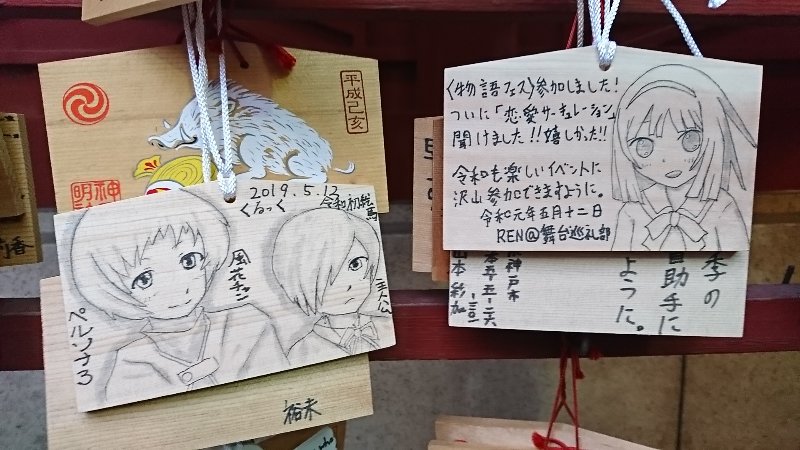 平成己亥
神
明
2019.5.12
くるっく
令和初絵馬
風花チャン
主人公
ペルソナ3
裕未
〈物語フェス〉参加しました!
ついに「恋愛サーキュレーション」
聞けました!!嬉しかった!!
令和も楽しいイベントに
沢山参加できますように。
令和元年五月十二日
REN@舞台巡礼部
季の
助手に
ように。
神戸市
山本彩加
香